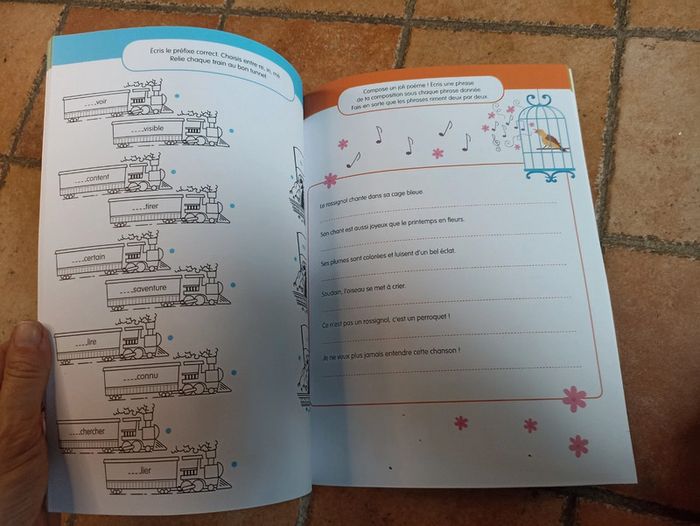 Écris le préfixe correct. Choisis entre re, in, mé.
Relie chaque train au bon tunnel
....voir
....visible
....content
....tirer
....certain
....saventure
....lire
....connu
....chercher
....lier
Compose un joli poème ! Écris une phrase
de ta composition sous chaque phrase donnée
Fais en sorte que les phrases riment deux par deux
Le rossignol chante dans sa cage bleue.
Son chant est aussi joyeux que le printemps en fleurs.
Ses plumes sont colorées et luisent d'un bel éclat.
Soudain, l'oiseau se met à crier.
Ce n'est pas un rossignol, c'est un perroquet !
Je ne veux plus jamais entendre cette chanson !